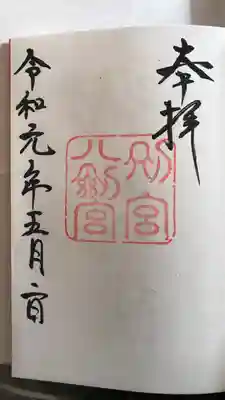 奉拝
別宮
八剣宮
令和元年五月二日